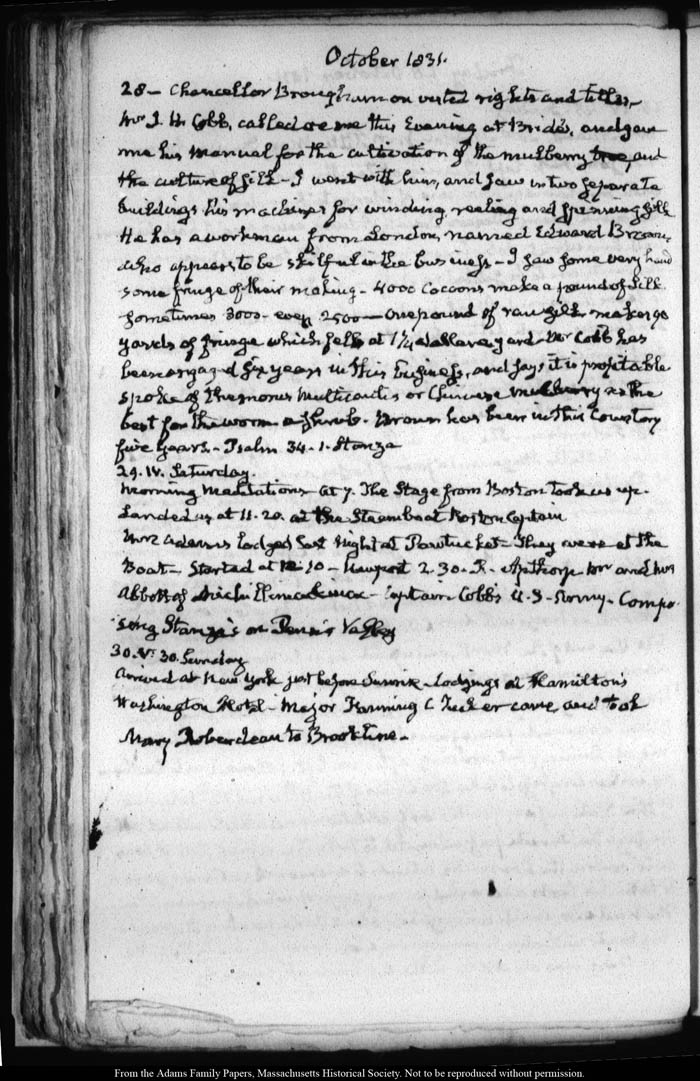 October 1831.
28 – Chancellor Brougham on vested rights and titles,
Mr J. H. Cobb, called on me this Evening at Bride's, and gave
me his Manual for the cultivation of the mulberry tree, and
the culture of Silk – I went with him, and saw in two separate
buildings his machines for winding, reeling and spinning silk
He has a workman from London, named Edward Brown,
who appears to be skilful in the business – I saw some very hand
some fringe of their making – 4000 Cocoons make a pound of Silk
sometimes 3000 – even 2500 – One pound of raw silk makes 90
yards of fringe which sells at 1¼ dollar a yard – Mr Cobb has
been engaged six years in this business, and says it is profitable
spoke of the morus Multicaulis or Chinese mulberry as the
best for the worm a shrub. Brown has been in this Country
five years. – Psalm 34. 1. Stanza
29. IV. Saturday.
Morning Meditations – at 7. The Stage from Boston took us up.
Landed us at 11.20. at the Steamboat Boston Captain
Mrs Adams lodged last Night at Pawtucket – They were at the
Boat – Started at 12.10 – Newport 2.30. R. Apthorp Mr and Mrs
Abbott of Michillimackinac – Captain Cobbs U.S. Army – Compo-
sing Stanza's on Penn's Valley
30. V. 30. Sunday
Arrived at New York just before Sunrise – Lodgings at Hamilton's
Washington Hotel – Major Fanning C Tucker came, and took
Mary Roberdeau to Brookline. –
From the Adams Family Papers, Massachusetts Historical Society. Not to be reproduced without permission.